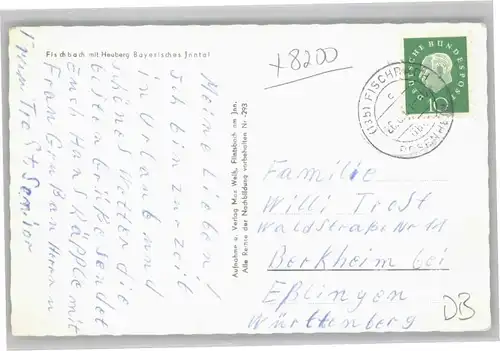 Fischbach mit Heuberg Bayerisches Inntal
+8200
DEUTSCHE BUNDESPOST
10
(13b) FISCHBACH
ROSENHEIM
Meine Lieben!
Ich bin zur zeit
in Urlaub und
schönes Wetter die
besten Grüße sendet
Euch Hans Käpple mit
Frau Gruß an Herrn u
Frau Trost Senior
Aufnahme u. Verlag Max Weiß, Flintsbach am Inn.
Alle Rechte der Nachbildung vorbehalten Nr. 293
Familie
Willi Trost
Waldstraße Nr 11
Berkheim bei
Eßlingen
Württemberg
DB